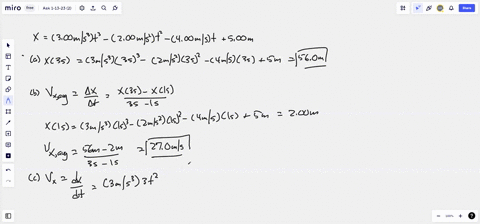 miro free Ask 1-13-23 (2)
Share
x = (3.00m/s³)t³ - (2.00m/s²)t² - (4.00m/s)t + 5.00m
(a) x(3s) = (3m/s³)(3s)³ - (2m/s²)(3s)² - (4m/s)(3s) + 5m = 56.0m
(b) Vx,avg = Δx/Δt = x(3s) - x(1s) / 3s - 1s
x(1s) = (3m/s³)(1s)³ - (2m/s²)(1s)² - (4m/s)(1s) + 5m = 2.00m
Vx,avg = 56m - 2m / 3s - 1s = 27.0m/s
(c) Vx = dx/dt = (3m/s³)3t²